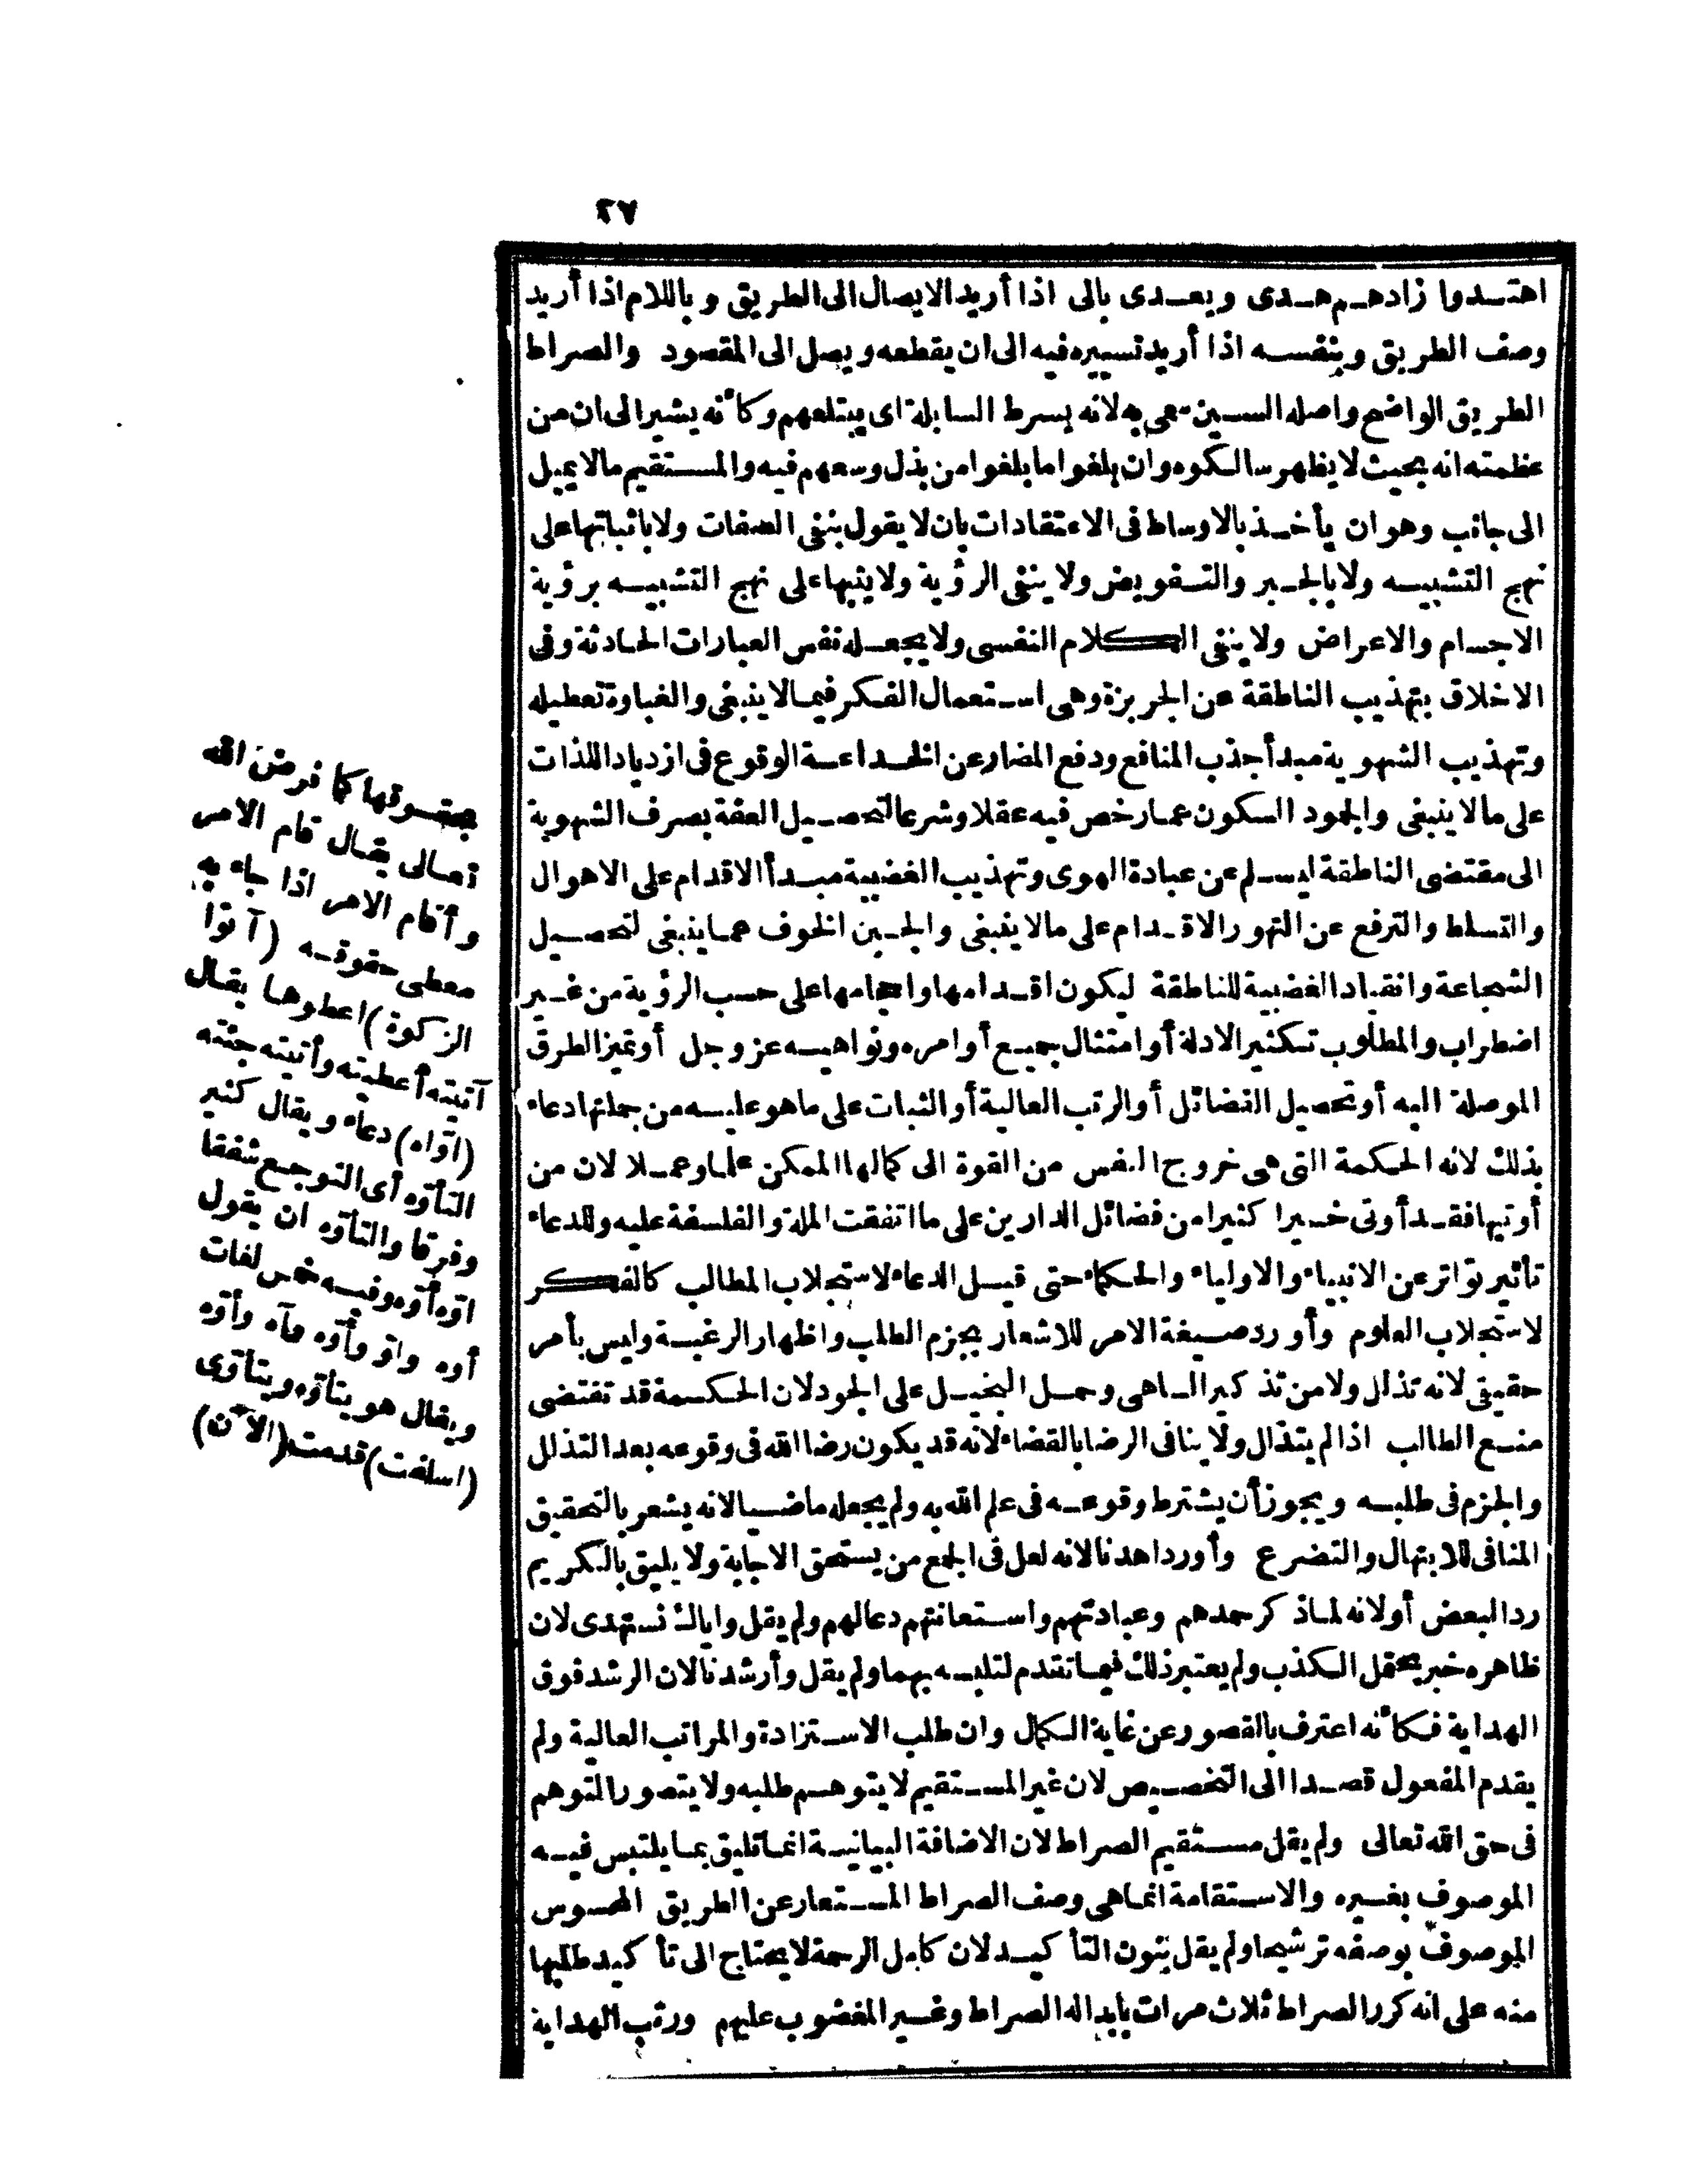 ٢٧
اهتدوا زادهم هدى ويعدى بالى اذا أريد الايصال الى الطريق وباللام اذا أريد
وصف الطريق وبنفسه اذا أريد تسييره فيه الى ان يقطعه ويصل الى المقصود والصراط
الطريق الواضح واصله السين سمى به لانه يسرط السابلة اى يبتلعهم وكأنه يشير الى ان من
عظمته انه بحيث لا يظهر سالكوه وان بلغوا ما بلغوا من بذل وسعهم فيه والمستقيم مالا يميل
الى جانب وهو ان يأخذ بالاوساط فى الاعتقادات بان لا يقول بنفى الصفات ولا باثباتها على
نهج التشبيه ولا بالجبر والتفويض ولا ينفى الرؤية ولا يثبها على نهج التشبيه برؤية
الاجسام والاعراض ولا ينفى الكلام النفسى ولا يجعله نفس العبارات الحادثة وفى
الاخلاق بتهذيب الناطقة عن الجربزة وهى استعمال الفكر فيما لا ينبغى والغباوة تعطيله
وتهذيب الشهوية مبدأ جذب المنافع ودفع المضار عن الخداعة الوقوع فى ازدياد اللذات
على ما لا ينبغى والجمود السكون عما رخص فيه عقلا وشرعا لتحصيل العفة بصرف الشهوية
الى مقتضى الناطقة ليسلم عن عبادة الهوى وتهذيب الغضبية مبدأ الاقدام على الاهوال
والتسلط والترفع عن التهور الاقدام على مالا ينبغى والجبن الخوف عما ينبغى لتحصيل
الشجاعة وانقياد الغضبية للناطقة ليكون اقدامها واحجامها على حسب الرؤية من غير
اضطراب والمطلوب تكثير الادلة أو امتثال جميع أوامره ونواهيه عز وجل أو تميز الطرق
الموصلة اليه أو تحصيل الفضائل أو الرتب العالية أو الثبات على ما هو عليه من جملتها دعاء
بذلك لانه الحكمة التى هى خروج النفس من القوة الى كمالها الممكن علما وعملا لان من
أوتيها فقد أوتى خيرا كثيرا من فضائل الدارين على ما اتفقت الملة والفلسفة عليه وللدعاء
تأثير تواتر عن الانبياء والاولياء والحكماء حتى قيل الدعاء لاستجلاب المطالب كالفكر
لاستجلاب العلوم وأورد صيغة الامر للاشعار بجزم الطلب واظهار الرغبة وليس بأمر
حقيقى لانه تذلل ولا من تذكير الساهى وحمل البخيل على الجود لان الحكمة قد تقتضى
منع الطالب اذا لم يتذلل ولا ينافى الرضا بالقضاء لانه قد يكون رضا الله فى وقوعه بعد التذلل
والجزم فى طلبه ويجوز أن يشترط وقوعه فى علم الله به ولم يجعله ماضيا لانه يشعر بالتحقيق
المنافى للابتهال والتضرع وأورد اهدنا لانه لعل فى الجمع من يستحق الاجابة ولا يليق بالكريم
رد البعض أو لانه لما ذكر حمدهم وعبادتهم واستعانتهم دعا لهم ولم يقل واياك نستهدى لان
ظاهره خبر يحتمل الكذب ولم يعتبر ذلك فيما تقدم لتلبسه بهما ولم يقل وأرشدنا لان الرشد فوق
الهداية فكأنه اعترف بالقصور عن غاية الكمال وان طلب الاستزادة والمراتب العالية ولم
يقدم المفعول قصدا الى التخصيص لان غير المستقيم لا يتوهم طلبه ولا يتصور التوهم
فى حق الله تعالى ولم يقل مستقيم الصراط لان الاضافة البيانية انما تليق بما يلتبس فيه
الموصوف بغيره والاستقامة انما هى وصف الصراط المستعار عن الطريق المحسوس
الموصوف بوصفه ترشيحا ولم يقل بنون التأكيد لان كامل الرحمة لا يحتاج الى تأكيد طلبها
منه على انه كرر الصراط ثلاث مرات بابداله الصراط وغير المغضوب عليهم ورتب الهداية
بحقوقها كما فرض الله
تعالى يقال قام الامر
وأقام الامر اذا جاء به
معطى حقوقه (آتوا
الزكوة) اعطوها يقال
آتيته أعطيته وأتيته جئته
(اوّاه) دعاء ويقال كثير
التأوّه أى التوجع شفقا
وفرقا والتأوّه ان يقول
اوّه أوّه وفيه خمس لغات
أوه واوّ وأوّه وآه وأوّه
ويقال هو يتأوّه ويتأوّى
(اسلفت) قدمت (الآن)